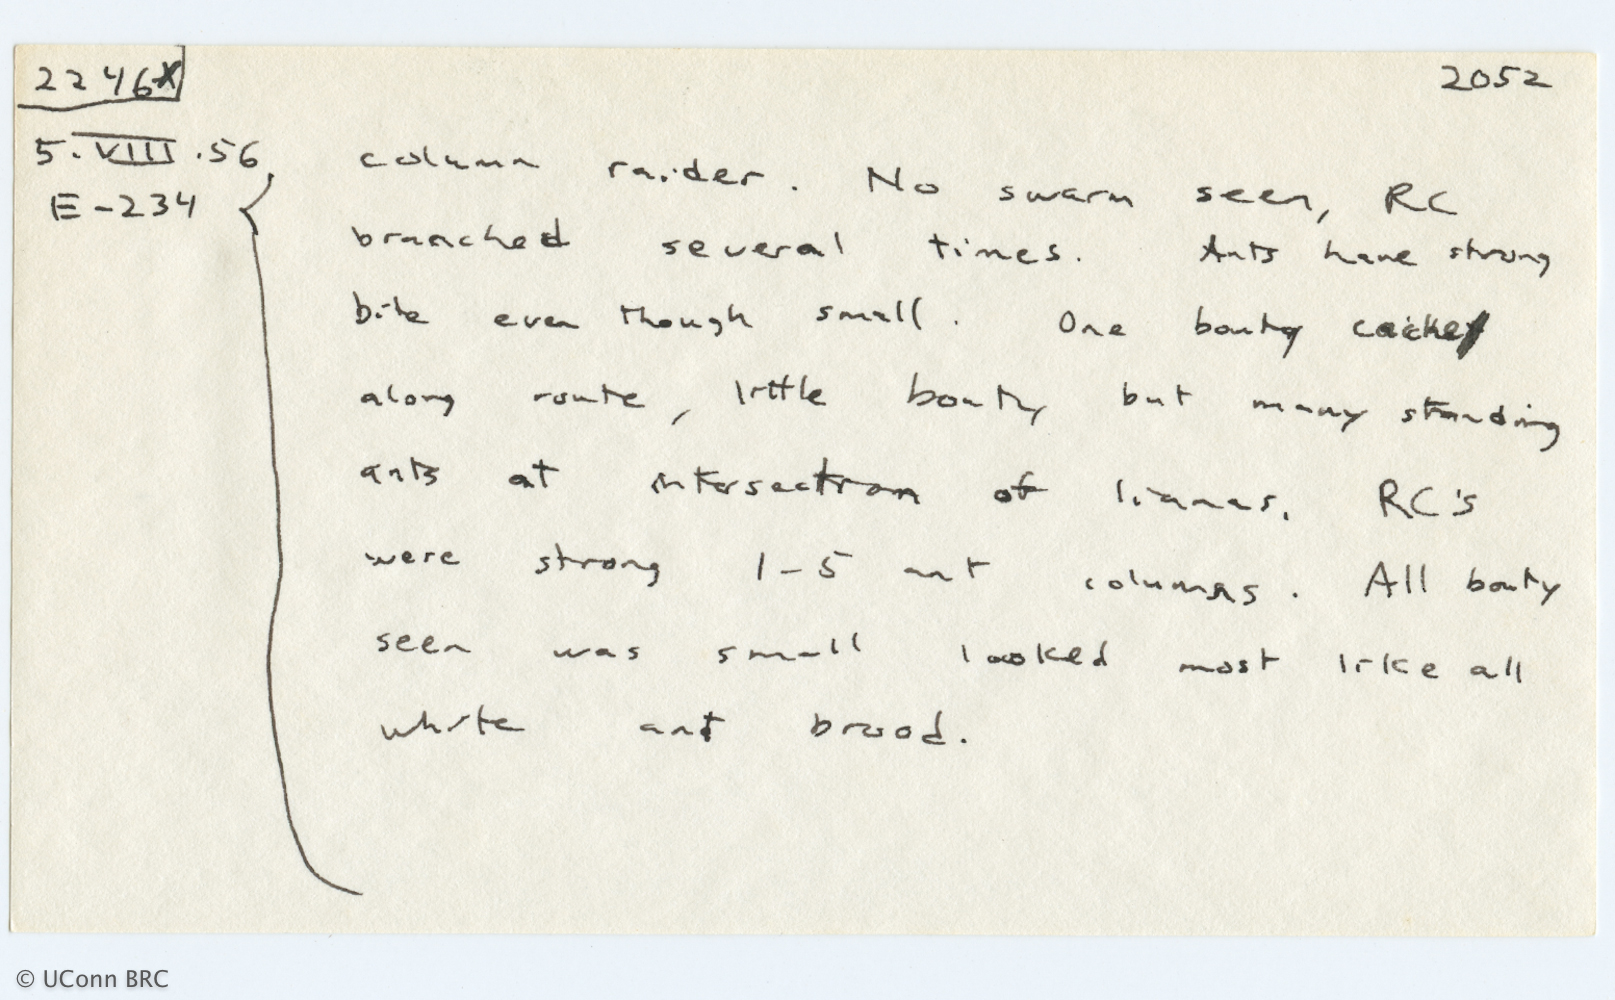 2246X
2052
5.VIII.56
E-234
column raider. No swarm seen, RC
branched several times. Ants have strong
bite even though small. One booty cache
along route, little booty but many standing
ants at intersection of lianas. RC's
were strong 1-5 ant columns. All booty
seen was small looked most like all
white ant brood.
© UConn BRC